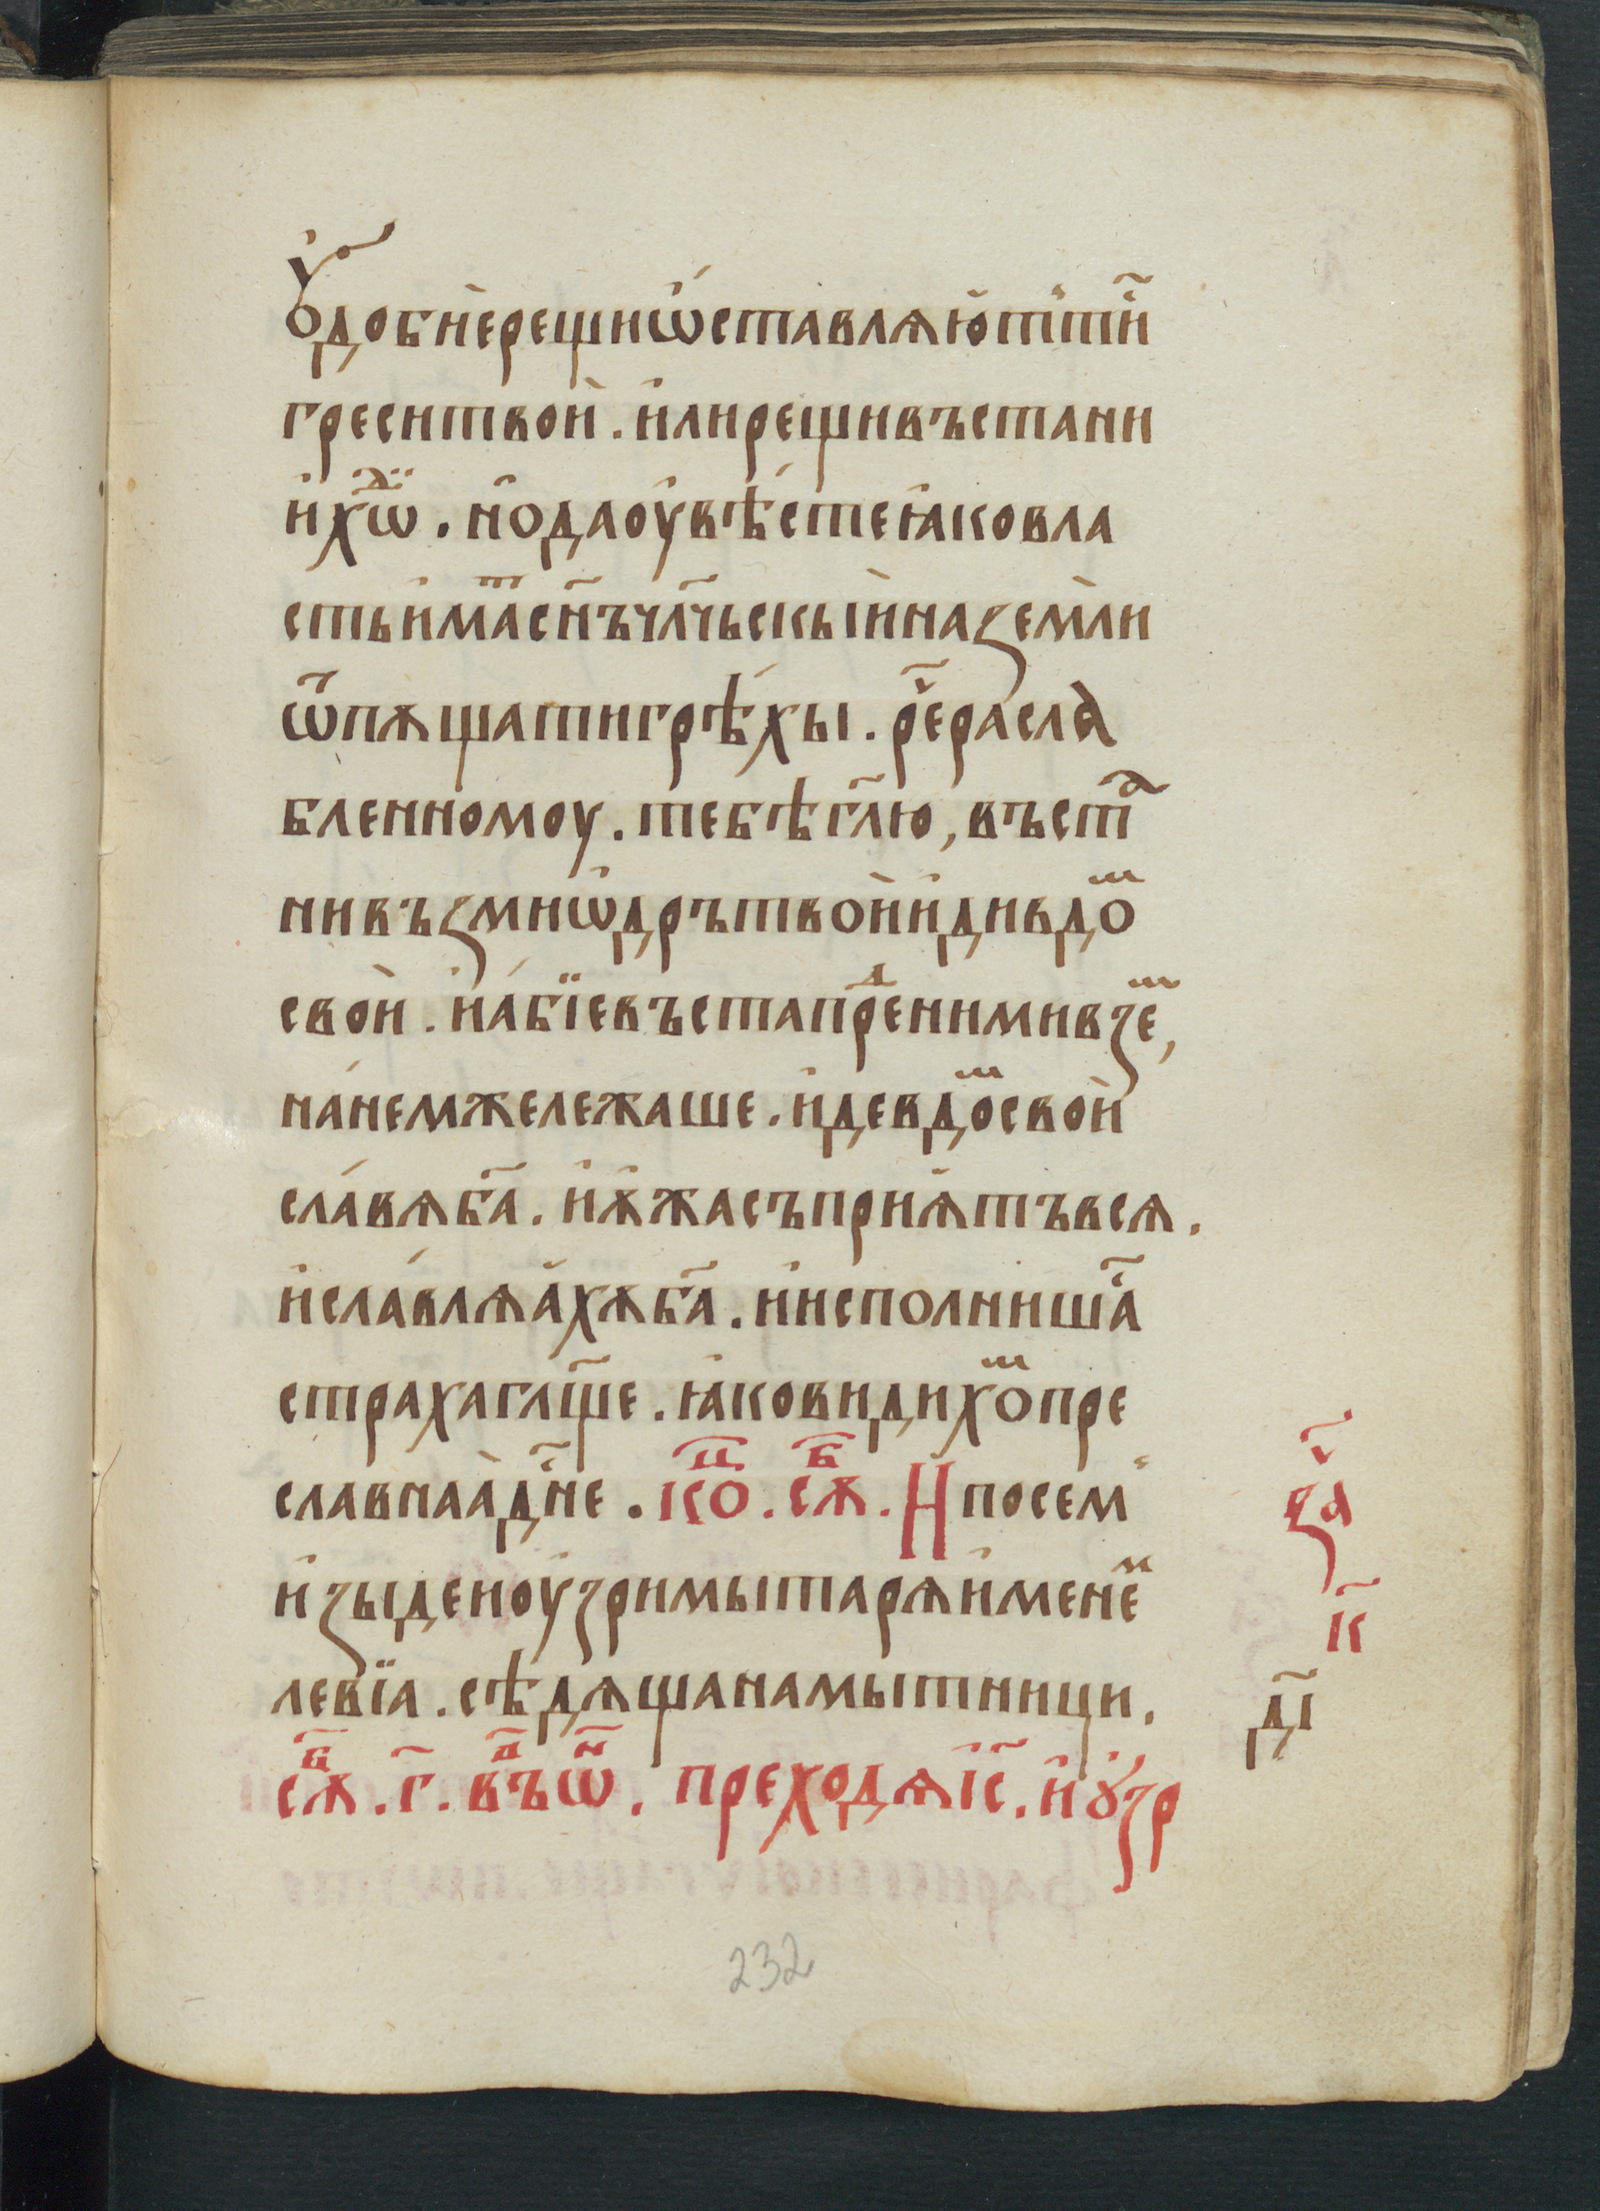 ꙋ҆добне́е рещи ѡ҆ставлѧю҆т ти҆ сѧ
греси твои҆ . и҆ли рещи въстани
и҆ хо҃дѝ . н҆ о да оу҆вѣ́сте ꙗ҆ко вла
сть и҆мат сн҃ъ чл҃чьскыи҆ на ꙁемли
ѿпѫщати грѣ́хы . ре҃ расла
бленномоу . тебѣ гл҃ю , въста
ни въꙁми ѡ҆дръ твои҆ и҆ди в дом
свои҆ . и҆ а́бїе въста пред ними вꙁем ,
на́ немже лежаше . и҆де в дом свои҆
сла́вѧ б҃а . и҆ ѫ҆жасъ прїѧ҆тъ всѧ .
и҆ сла́влѧа҆хѫ б҃а . и҆ исполнишѧ
страха гл҃ше . ꙗ҆ко видихом пре
славнаа҆ дн҃е . коц . сѫб . И по сем
и҆ꙁыде и оу҆ꙁри мытарѧ и҆менем
левїа . сѣдѧща на мытници .
сѫб . г҃ . въ он д . преходѧ і҆с҃ . и҆ ꙋ҆ꙁр
ꙁа҃
к҃
д҃і
232